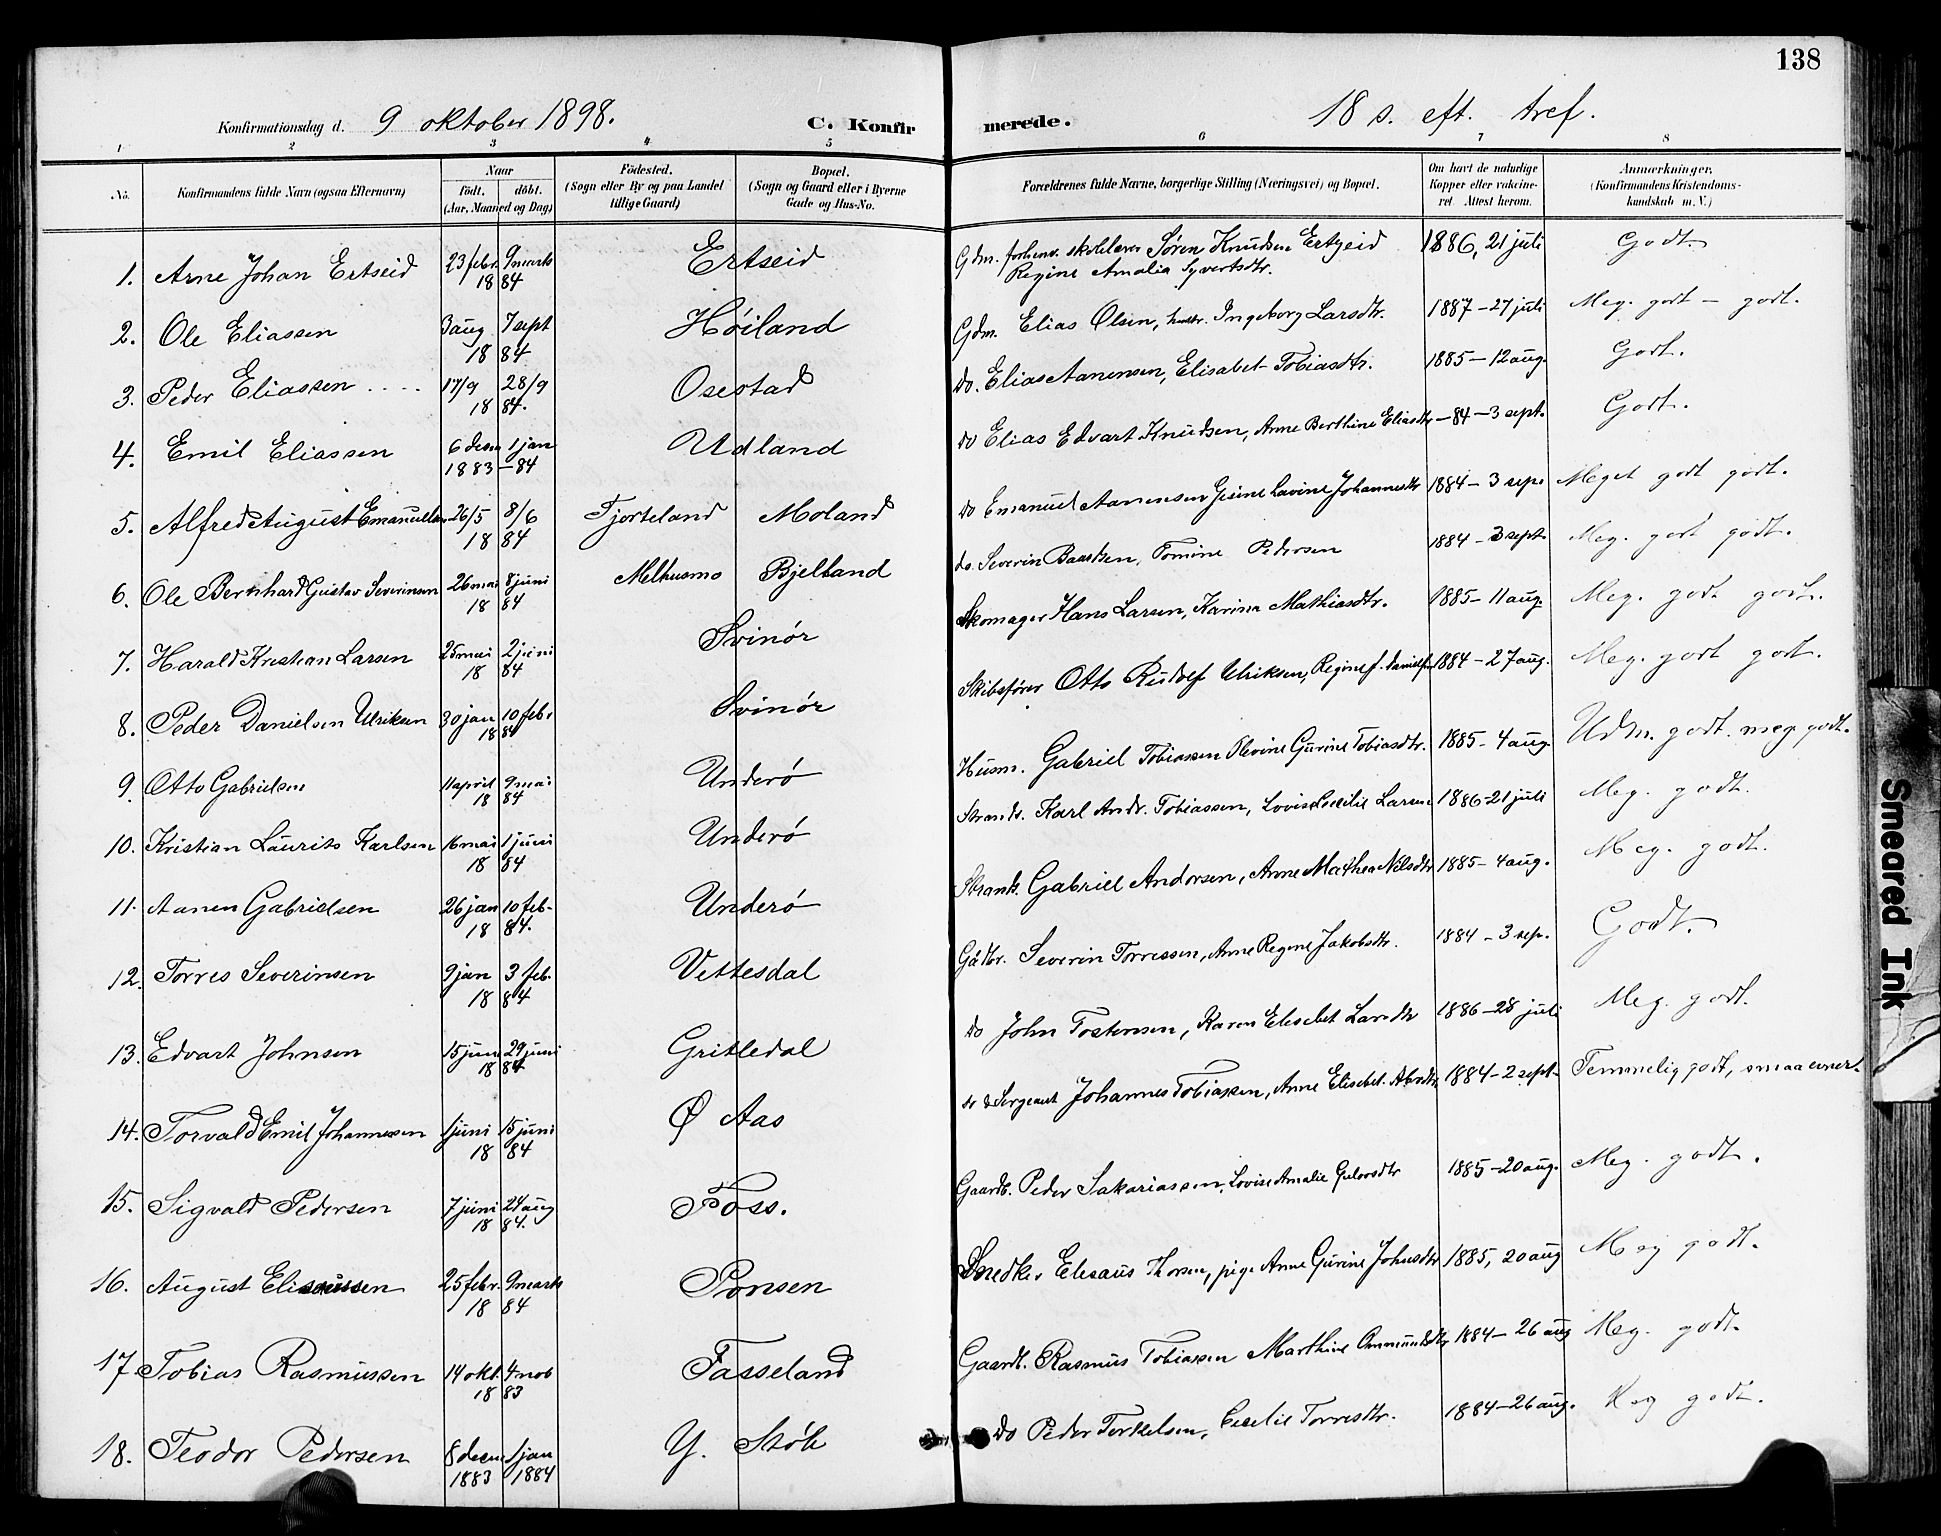 138
Konfirmationsdag d. 9 oktober 1898. C. Konfirmerede. 18 s. eft. tref.
1 2 3 4 5 6 7 8
No. Konfirmandens fulde Navn (ogsaa Efternavn) Naar født, døbt. (Aar, Maaned og Dag) Fødested. (Sogn eller By og paa Landet tillige Gaard) Bopæl. (Sogn og Gaard eller i Byerne Gade og Hus-No. Forældrenes fulde Navne, borgerlige Stilling (Næringsvei) og Bopæl. Om havt de naturlige Kopper eller vakcineret Attest herom. Anmærkninger. (Konfirmandens Kristendomskundskab m. V.)
1. Arne Johan Ertseid 23 febr. 9 marts 18 84 Ertseid Gdm. forhenv. skolelærer Søren Knudsen Ertzeid Regine Amalia Syvertsdtr. 1886, 21 juli Godt.
2. Ole Eliassen 3 aug 7 sept 18 84 Høiland Gdm. Elias Olsen, hustr. Ingeborg Larsdtr. 1887 - 27 juli Meg. godt - godt.
3. Peder Eliassen .... 17/9 28/9 18 84. Osestad do. Elias Aanensen, Elisabet Tobiasdtr. 1885 - 12 aug. Godt.
4. Emil Eliassen 6 desem 1 jan 1883 - 84 Udland do Elias Edvart Knudsen, Anne Berthine Eliasdtr - 84 - 3 sept. Godt.
5. Alfred August Emanuelsen 26/5 8/6 18 84 Fjorteland Moland do Emanuel Aanensen Gesine Lavine Johannesdtr 1884 - 3 sept. Meget godt godt.
6. Ole Bernhard Gustav Severinsen 26 mai 8 juni 18 84 Melhusmo Bjelland do. Severin Baardsen, Tomine Pedersen 1884 - 3 sept. Meg. godt godt.
7. Harald Kristian Larsen 25 mai 2 juni 18 84 Svinør Skomager Hans Larsen, Karina Mathiasdtr. 1885 - 11 aug. Meg. godt godt.
8. Peder Danielsen Ulriksen 30 jan 10 febr 18 84 Svinør Skibsfører Otto Rudolf Ulriksen, Regine f. Danielsen 1884 - 27 aug. Meg. godt godt.
9. Otto Gabrielsen 11 april 9 mai 18 84 Underø Husm. Gabriel Tobiassen Olevine Gurine Tobiasdtr. 1885 - 4 aug. Udm. godt. meg godt.
10. Kristian Laurits Karlsen 16 mai 1 juni 18 84 Underø Strands. Karl Andr. Tobiassen, Lovise Cecilie Larsen 1886 - 21 juli Meg. godt.
11. Aanen Gabrielsen 26 jan 10 feb. 18 84. Underø Strands. Gabriel Andersen, Anne Mathea Nilsdtr 1885 - 4 aug. Meg. godt.
12. Torres Severinsen 9 jan 3 feb. 18 84 Vettesdal Gåbr. Severin Torressen, Anne Regine Jakobsdtr. 1884 - 3 sep. Godt.
13. Edvart Johnsen 15 juni 29 juni 18 84 Gritledal do John Tostensen, Karen Elisebet Larsdtr 1886 - 28 juli Meg. godt.
14. Torvald Emil Johannessen 1 juni 15 juni 18 84 Ø Aas do & Sergeant Johannes Tobiassen, Anne Elisebet Abrdtr. 1884 - 2 sept. Temmelig godt, smaa evner.
15. Sigvald Pedersen 7 juni 24 aug 18 84. Foss. Gaardb. Peder Sakariassen, Lovise Amalie Gulovsdtr 1885 - 20 aug. Meg. godt.
16. August Eliseussen 25 febr. 9 marts 18 84 Ponsen Snedker Eliseus Thorsen, pige Anne Gurine Johnsdtr 1885, 20 aug Meg godt.
17. Tobias Rasmussen 14 okt. 4 nob 18 83 Fasseland Gaardb. Rasmus Tobiassen Marthine Ommundsdtr 1884 - 26 aug Meg. godt.
18. Teodor Pedersen 8 decem 1 jan 1883 1884 Y. Støle Do Peder Terkelsen, Cecelie Torresdtr. 1884 - 26 aug. Meg godt.
Smeared Ink